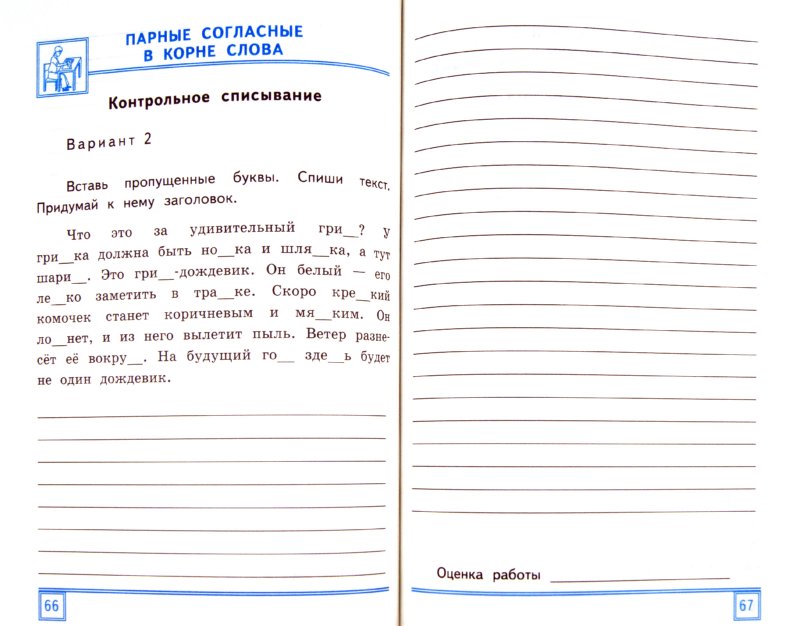 ПАРНЫЕ СОГЛАСНЫЕ
В КОРНЕ СЛОВА
Контрольное списывание
Вариант 2
Вставь пропущенные буквы. Спиши текст.
Придумай к нему заголовок.
Что это за удивительный гри__? У
гри__ка должна быть но__ка и шля__ка, а тут
шари__. Это гри__-дождевик. Он белый — его
ле__ко заметить в тра__ке. Скоро кре__кий
комочек станет коричневым и мя__ким. Он
ло__нет, и из него вылетит пыль. Ветер разне-
сёт её вокру__. На будущий го__ зде__ь будет
не один дождевик.
66
Оценка работы ____________________
67